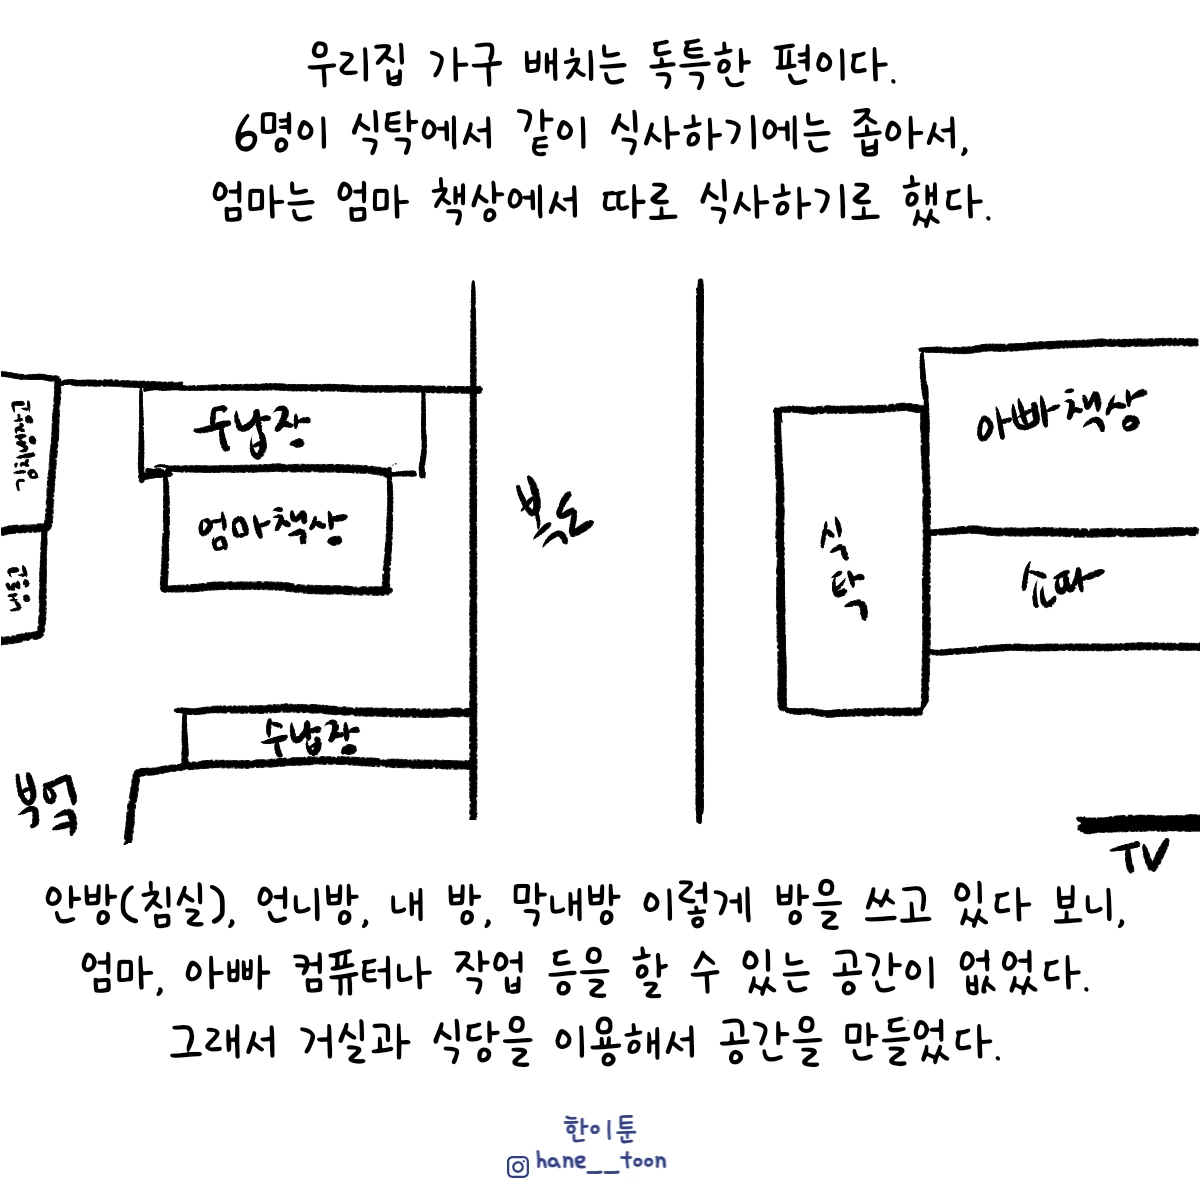 우리집 가구 배치는 독특한 편이다.
6명이 식탁에서 같이 식사하기에는 좁아서,
엄마는 엄마 책상에서 따로 식사하기로 했다.
수납장
엄마책상
수납장
부엌
복도
식탁
아빠책상
소파
TV
안방(침실), 언니방, 내 방, 막내방 이렇게 방을 쓰고 있다 보니,
엄마, 아빠 컴퓨터나 작업 등을 할 수 있는 공간이 없었다.
그래서 거실과 식당을 이용해서 공간을 만들었다.
한이툰
hane__toon